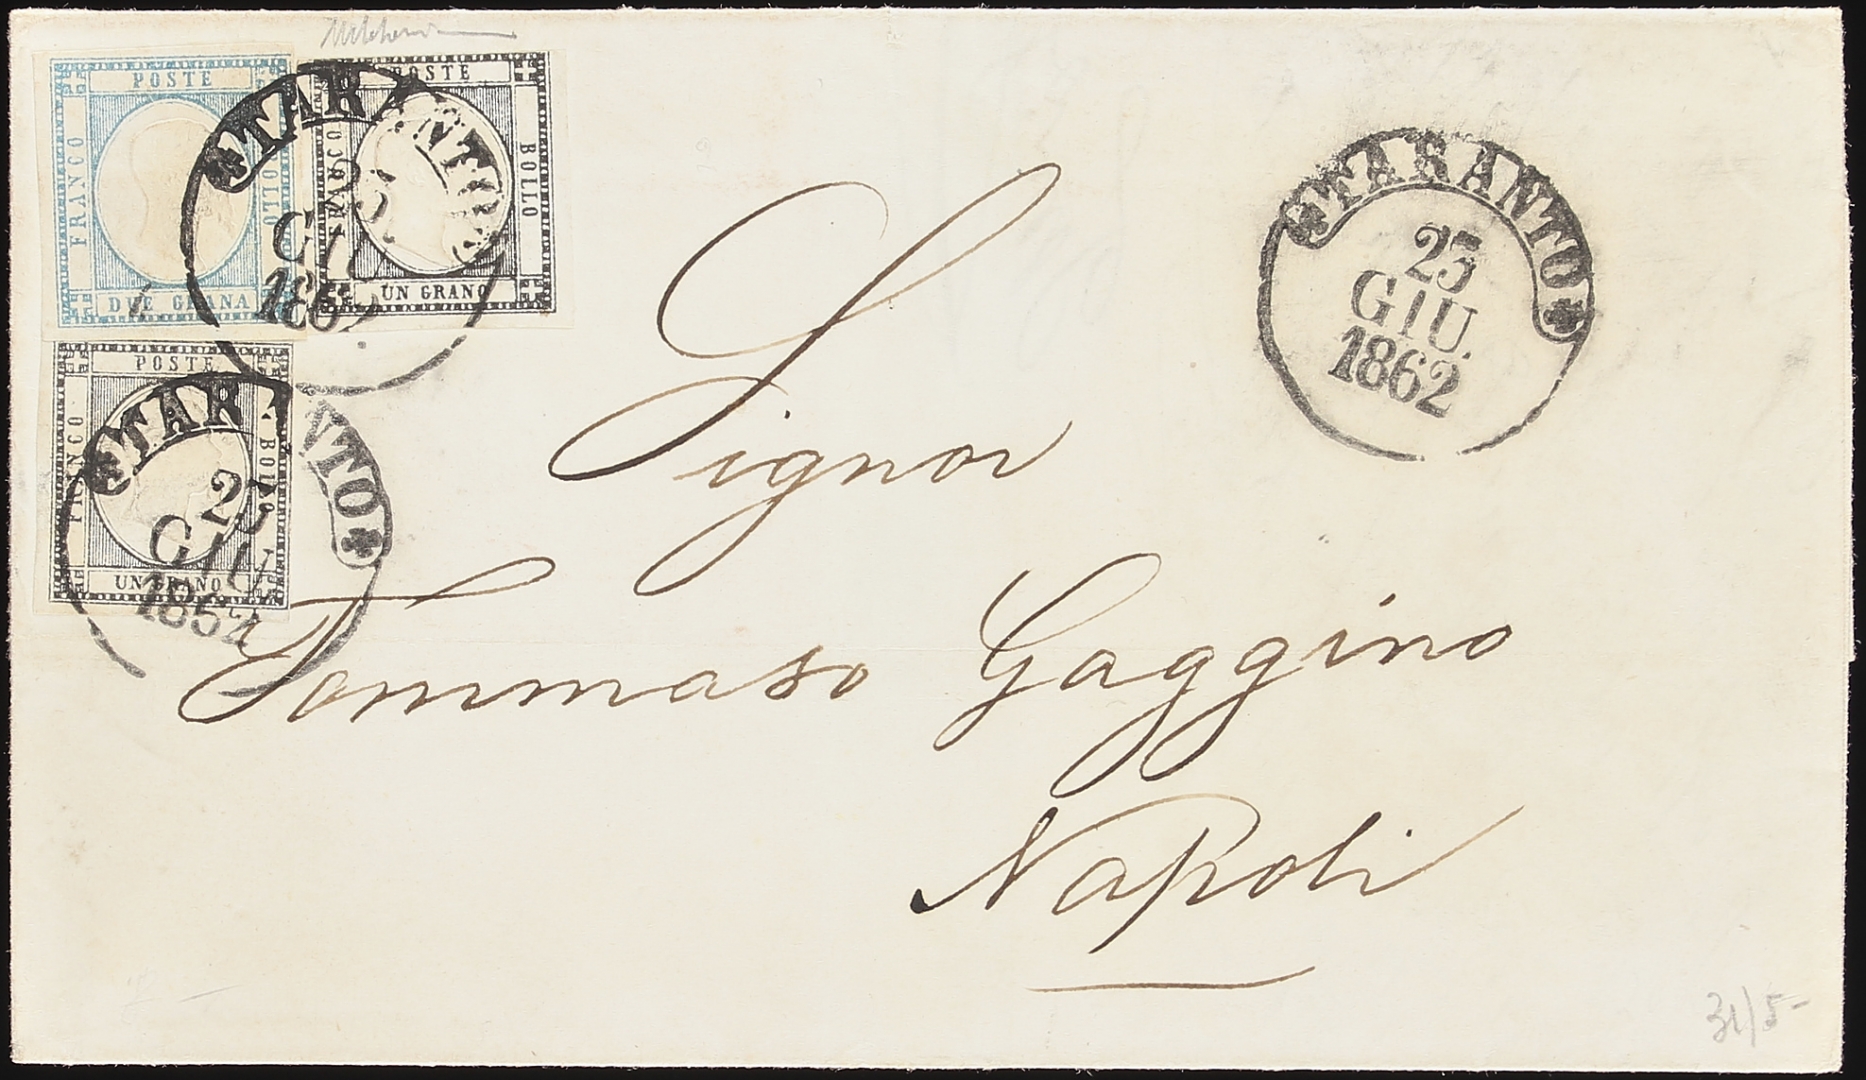 POSTE
FRANCO
BOLLO
DUE GRANA
POSTE
FRANCO
BOLLO
UN GRANO
TARANTO
25
GIU
1862
POSTE
FRANCO
BOLLO
UN GRANO
TARANTO
25
GIU
1862
TARANTO
25
GIU.
1862
Signor
Tommaso Gaggino
Napoli
31/5-